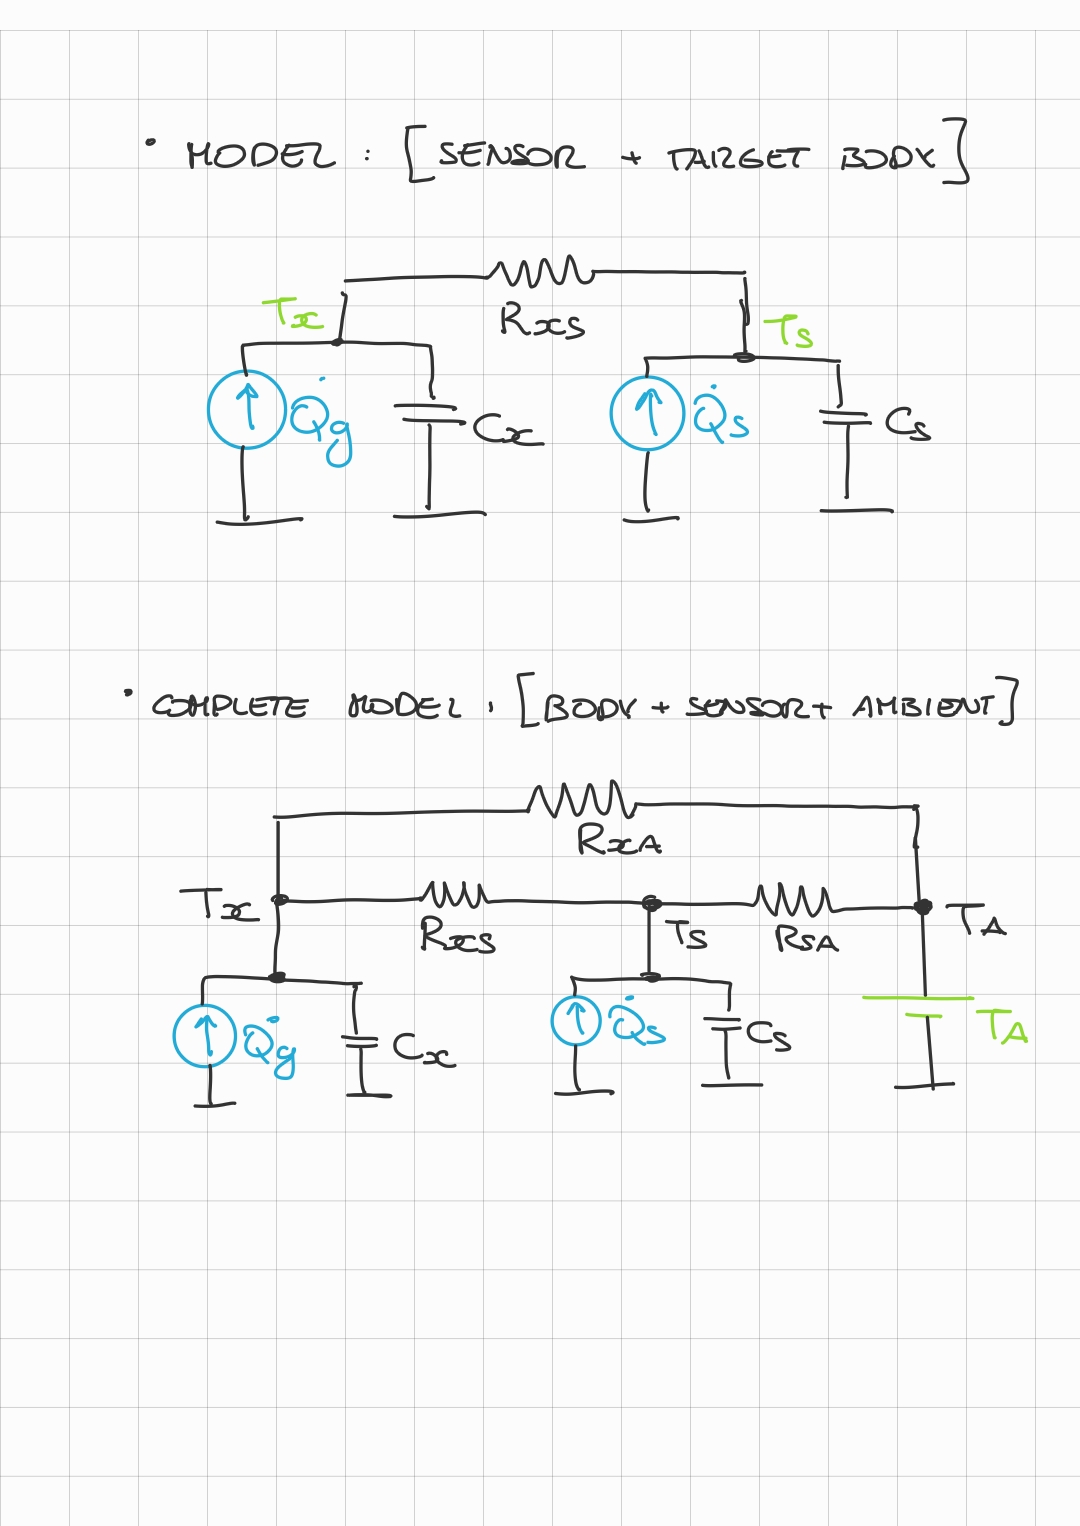 • MODEL : [SENSOR + TARGET BODY]
Rxs
Tx
Ts
Q̇g
Cx
Q̇s
Cs
• COMPLETE MODEL : [BODY + SENSOR + AMBIENT]
RxA
Tx
Rxs
Ts
RSA
TA
Q̇g
Cx
Q̇s
Cs
TA